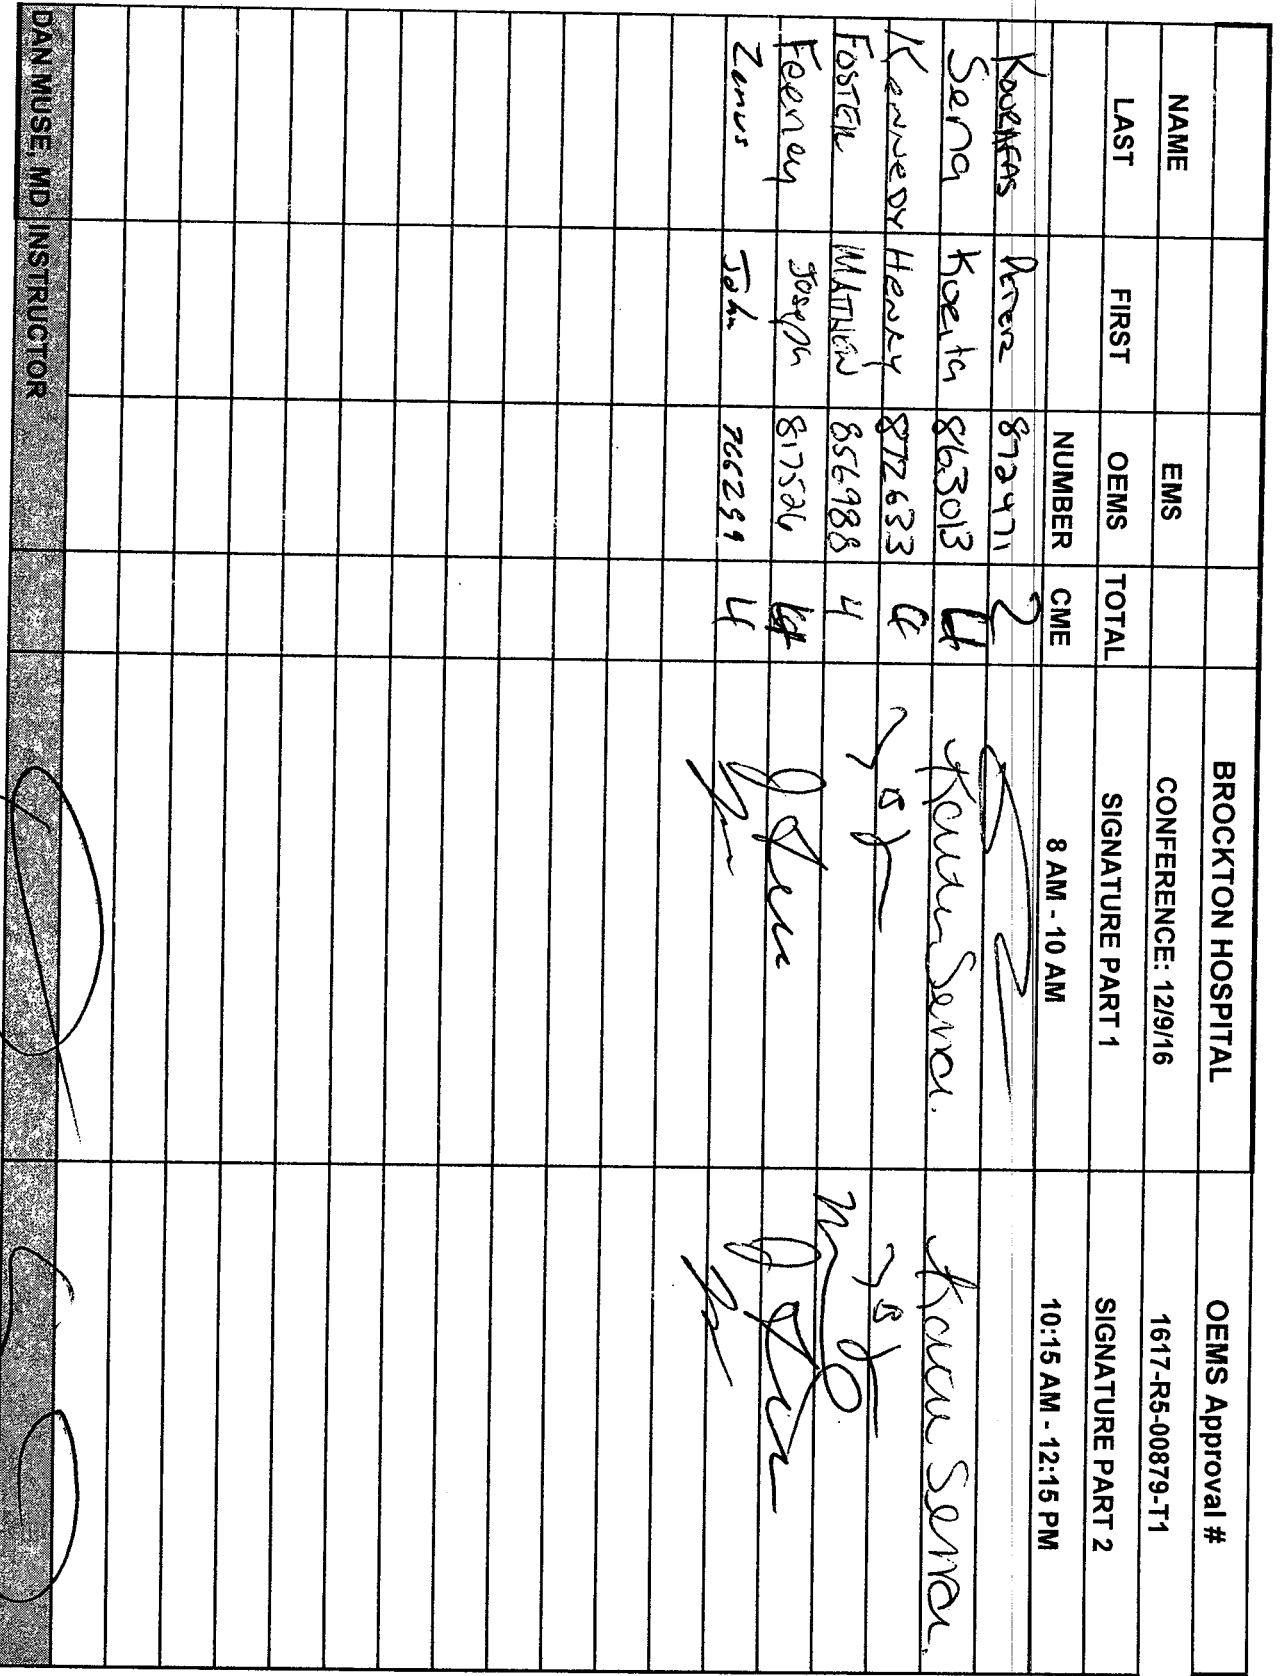 BROCKTON HOSPITAL OEMS Approval #
NAME EMS CONFERENCE: 12/9/16 1617-R5-00879-T1
LAST FIRST OEMS TOTAL SIGNATURE PART 1 SIGNATURE PART 2
NUMBER CME 8 AM - 10 AM 10:15 AM - 12:15 PM
Peter 872471 2
Sena 863013 4
Kennedy Henry 872633 4
FOSTER MATHEW 856988 4
Feeney Joseph 817526 4
John 766299 4
DAN MUSE, MD INSTRUCTOR